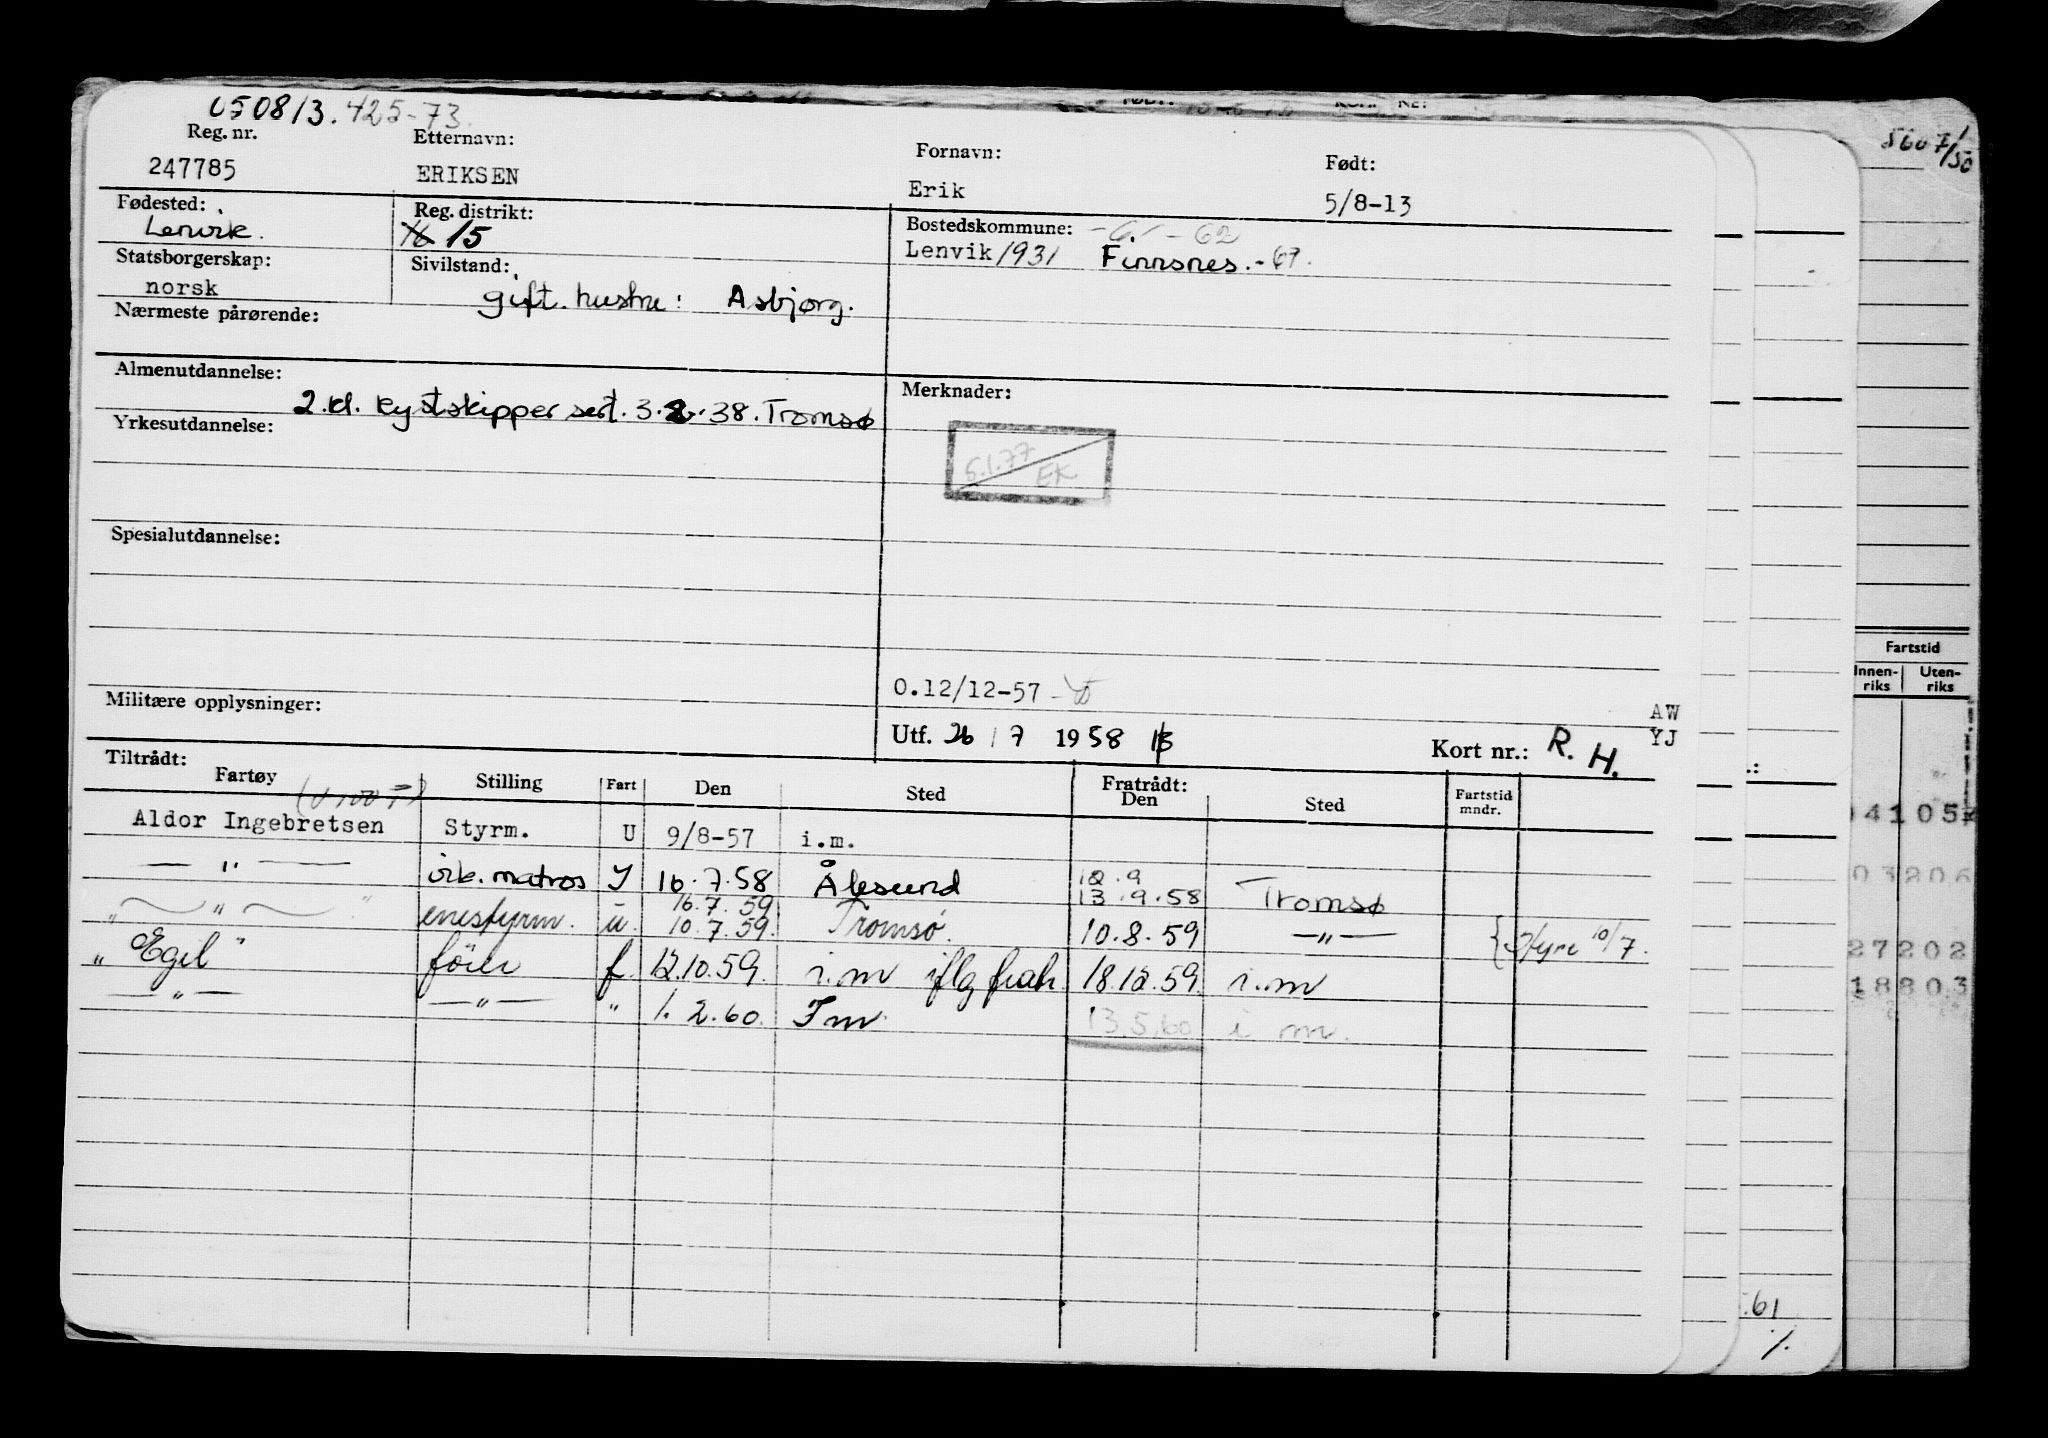 050813.425-73.
Reg. nr. Etternavn: Fornavn: Født:
247785 ERIKSEN Erik 5/8-13
Fødested: Reg. distrikt: Bostedskommune: 62
Lenvik. 16 15 Lenvik 1931 Finnsnes.-67.
Statsborgerskap: Sivilstand:
norsk gift. hustru: Asbjørg.
Nærmeste pårørende:
Almenutdannelse: Merknader:
2.kl. kystskipper sert. 3.2.38. Tromsø
Yrkesutdannelse:
5.1.77
EK
Spesialutdannelse:
O.12/12-57
Militære opplysninger: AW
Utf. 26/7 1958 Kort nr.: R. H. YJ
Tiltrådt: Fratrådt:
Fartøy Stilling Fart Den Sted Den Sted Fartstid mndr.
Aldor Ingebretsen Styrm. U 9/8-57 i.m.
— " — virk. matros I 16.7.58 Ålesund 12.9
13.9.58 Tromsø
16.7.59
" — " — " enestyrm. u. 10.7.59. Tromsø. 10.8.59 — " — { Styre 10/7.
" Egil " fører f. 12.10.59. i.m iflg frakt 18.12.59. i.m
— " — — " — " 1.2.60. I m 13.5.60 i m.
5607/50
Fartstid
Innen-riks Uten-riks
04105
03206
27202
18803
.61
%